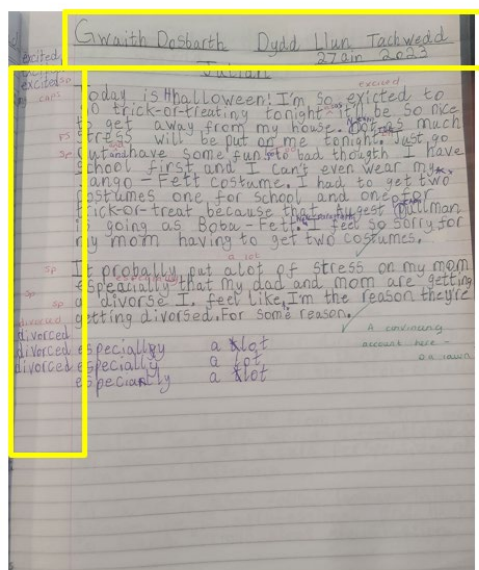 Gwaith Dosbarth Dydd Llun Tachwedd
27ain 2023
Julian
excited
excited sp
excited
caps Today is Hhalloween! I'm so exicted to
go trick-or-treating tonight it'll be so nice
to get away from my house. Not as much
stress will be put on me tonight. Just go
sp out and have some fun to bad thougth I have
school first and I can't even wear my
Jango-Fett costume. I had to get two
costumes one for school and one for
trick-or-treat because that
is going as Boba-Fett. I feel so sorry for
my mom having to get two costumes.
a lot
sp It probably put alot of stress on my mom
especially that my dad and mom are getting
sp a divorse I. feel like, I'm the reason they're
getting divorsed. For some reason.
diverced
diverced especially a lot
diverced especially a lot
diverced especially a lot
A convincing
account here -